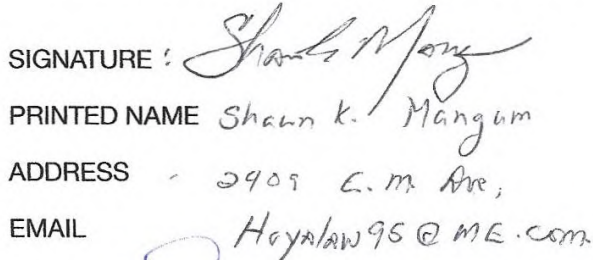 SIGNATURE : Shawn Mang
PRINTED NAME Shawn K. Mangum
ADDRESS - 2909 E. M. Ave,
EMAIL Hoyalaw95@ME.com